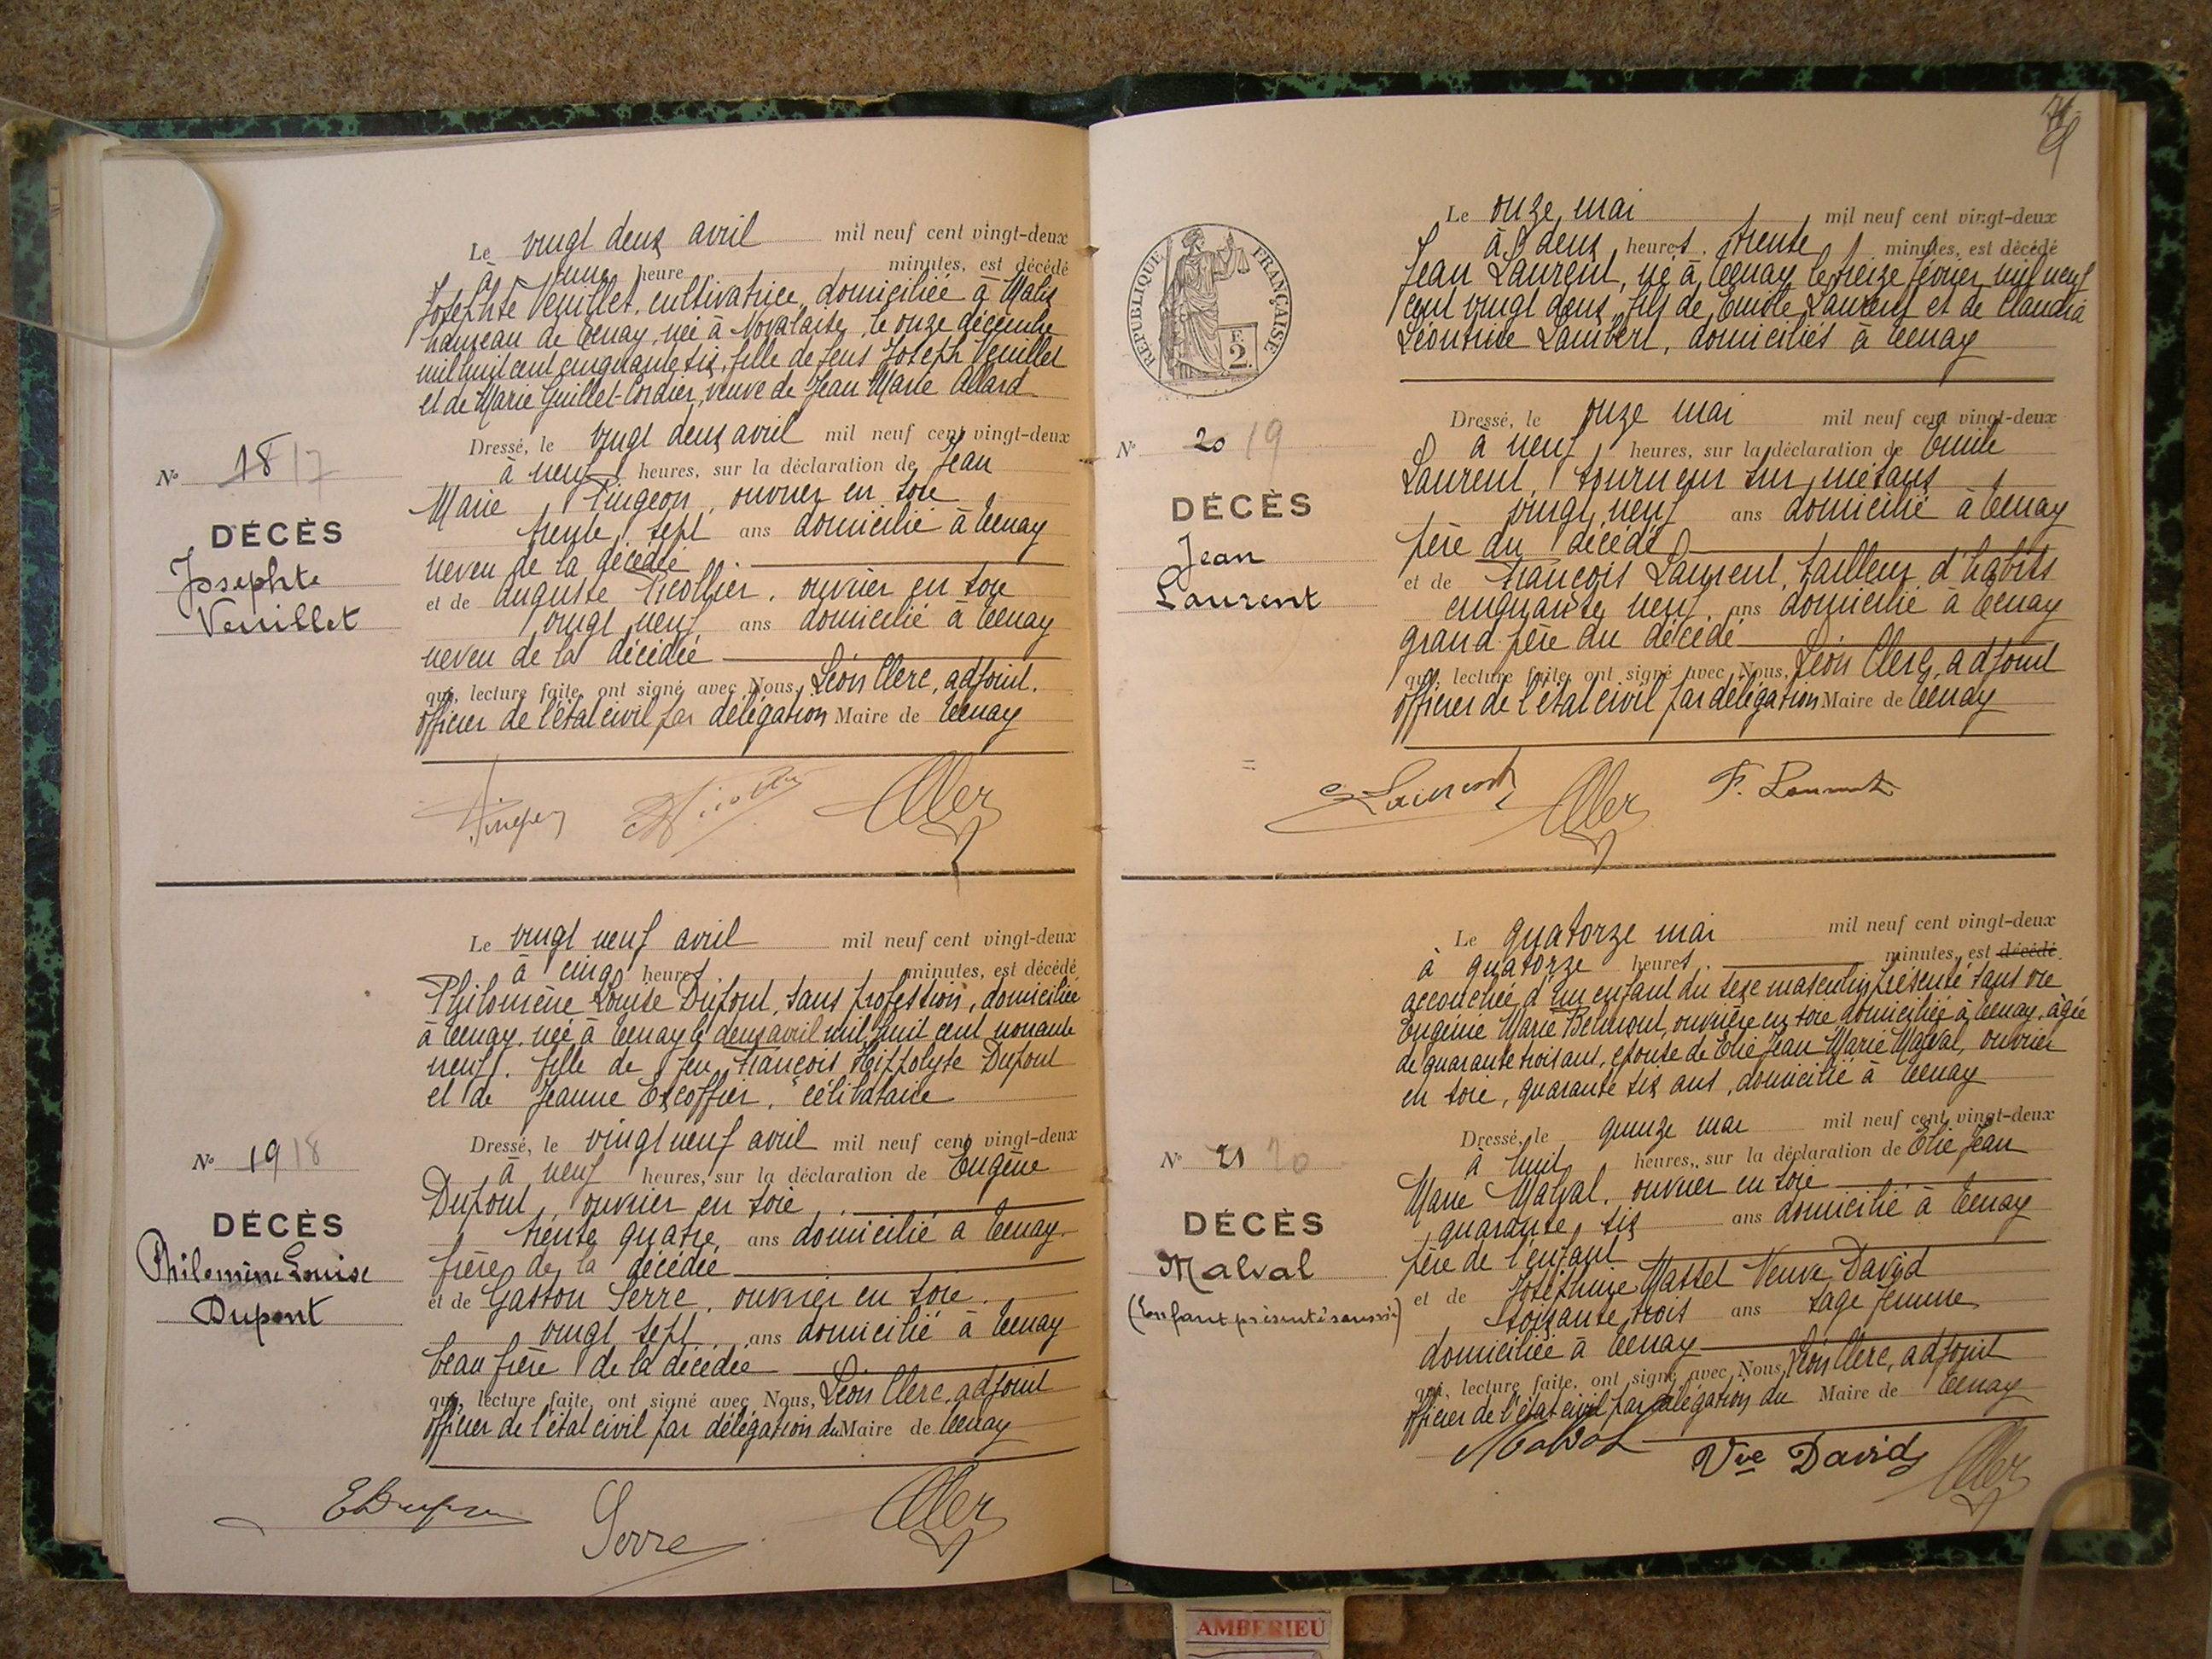 Le vingt deux avril mil neuf cent vingt-deux
à une heure minutes, est décédé
Josephte Veuillet, cultivatrice, domiciliée à Malix
hameau de Tenay, née à Novalaise, le onze décembre
mil huit cent cinquante six, fille de feus Joseph Veuillet
et de Marie Guillet-Cordier, veuve de Jean Marie Allard
Dressé, le vingt deux avril mil neuf cent vingt-deux
à neuf heures, sur la déclaration de Jean
Marie Pingeon, ouvrier en soie
trente sept ans domicilié à Tenay
neveu de la décédée
et de Auguste Picollier, ouvrier en soie
vingt neuf ans domicilié à Tenay
neveu de la décédée
qui, lecture faite, ont signé avec Nous, Léon Clerc, adjoint.
officier de l'état civil par délégation Maire de Tenay
No 18 17
DÉCÈS
Josephte
Veuillet
Le vingt neuf avril mil neuf cent vingt-deux
à cinq heures minutes, est décédé
Philomène Louise Dupont, sans profession, domiciliée
à Tenay, née à Tenay le deux avril mil huit cent nonante
neuf. fille de feu François Hippolyte Dupont
et de Jeanne Escoffier, célibataire
Dressé, le vingt neuf avril mil neuf cent vingt-deux
à neuf heures, sur la déclaration de Eugène
Dupont, ouvrier en soie,
trente quatre ans domicilié à Tenay
frère de la décédée
et de Gaston Serre, ouvrier en soie.
vingt sept ans domicilié à Tenay
beau frère de la décédée
qui, lecture faite, ont signé avec Nous, Léon Clerc, adjoint
officier de l'état civil par délégation du Maire de Tenay
No 19 18
DÉCÈS
Philomène Louise
Dupont
Serre
RÉPUBLIQUE FRANÇAISE
2
Le onze mai mil neuf cent vingt-deux
à deux heures trente minutes, est décédé
Jean Laurent, né à Tenay le treize février mil neuf
cent vingt deux, fils de Emile Laurent et de Claudia
Léontine Lambert, domiciliés à Tenay
Dressé, le onze mai mil neuf cent vingt-deux
à neuf heures, sur la déclaration de Emile
Laurent, tourneur sur métaux
vingt neuf ans domicilié à Tenay
père du décédé
et de François Laurent, tailleur d'habits
cinquante neuf ans domicilié à Tenay
grand père du décédé
qui, lecture faite, ont signé avec Nous, Léon Clerc, adjoint
officier de l'état civil par délégation Maire de Tenay
No 20 19
DÉCÈS
Jean
Laurent
F. Laurent
Le quatorze mai mil neuf cent vingt-deux
à quatorze heures minutes, est décédé
accouchée d'un enfant du sexe masculin présenté sans vie
Eugénie Marie Belmont, ouvrière en soie domiciliée à Tenay, âgée
de quarante trois ans, épouse de Elie Jean Marie Malval, ouvrier
en soie, quarante six ans, domicilié à Tenay
Dressé, le quinze mai mil neuf cent vingt-deux
à huit heures, sur la déclaration de Elie Jean
Marie Malval, ouvrier en soie
quarante six ans domicilié à Tenay
père de l'enfant
et de Joséphine Massel Veuve David
soixante trois ans sage femme
domiciliée à Tenay
qui, lecture faite, ont signé avec Nous, Léon Clerc, adjoint
officier de l'état civil par délégation du Maire de Tenay
No 21 20
DÉCÈS
Malval
(Enfant présenté sans vie)
Malval Vve David
AMBERIEU